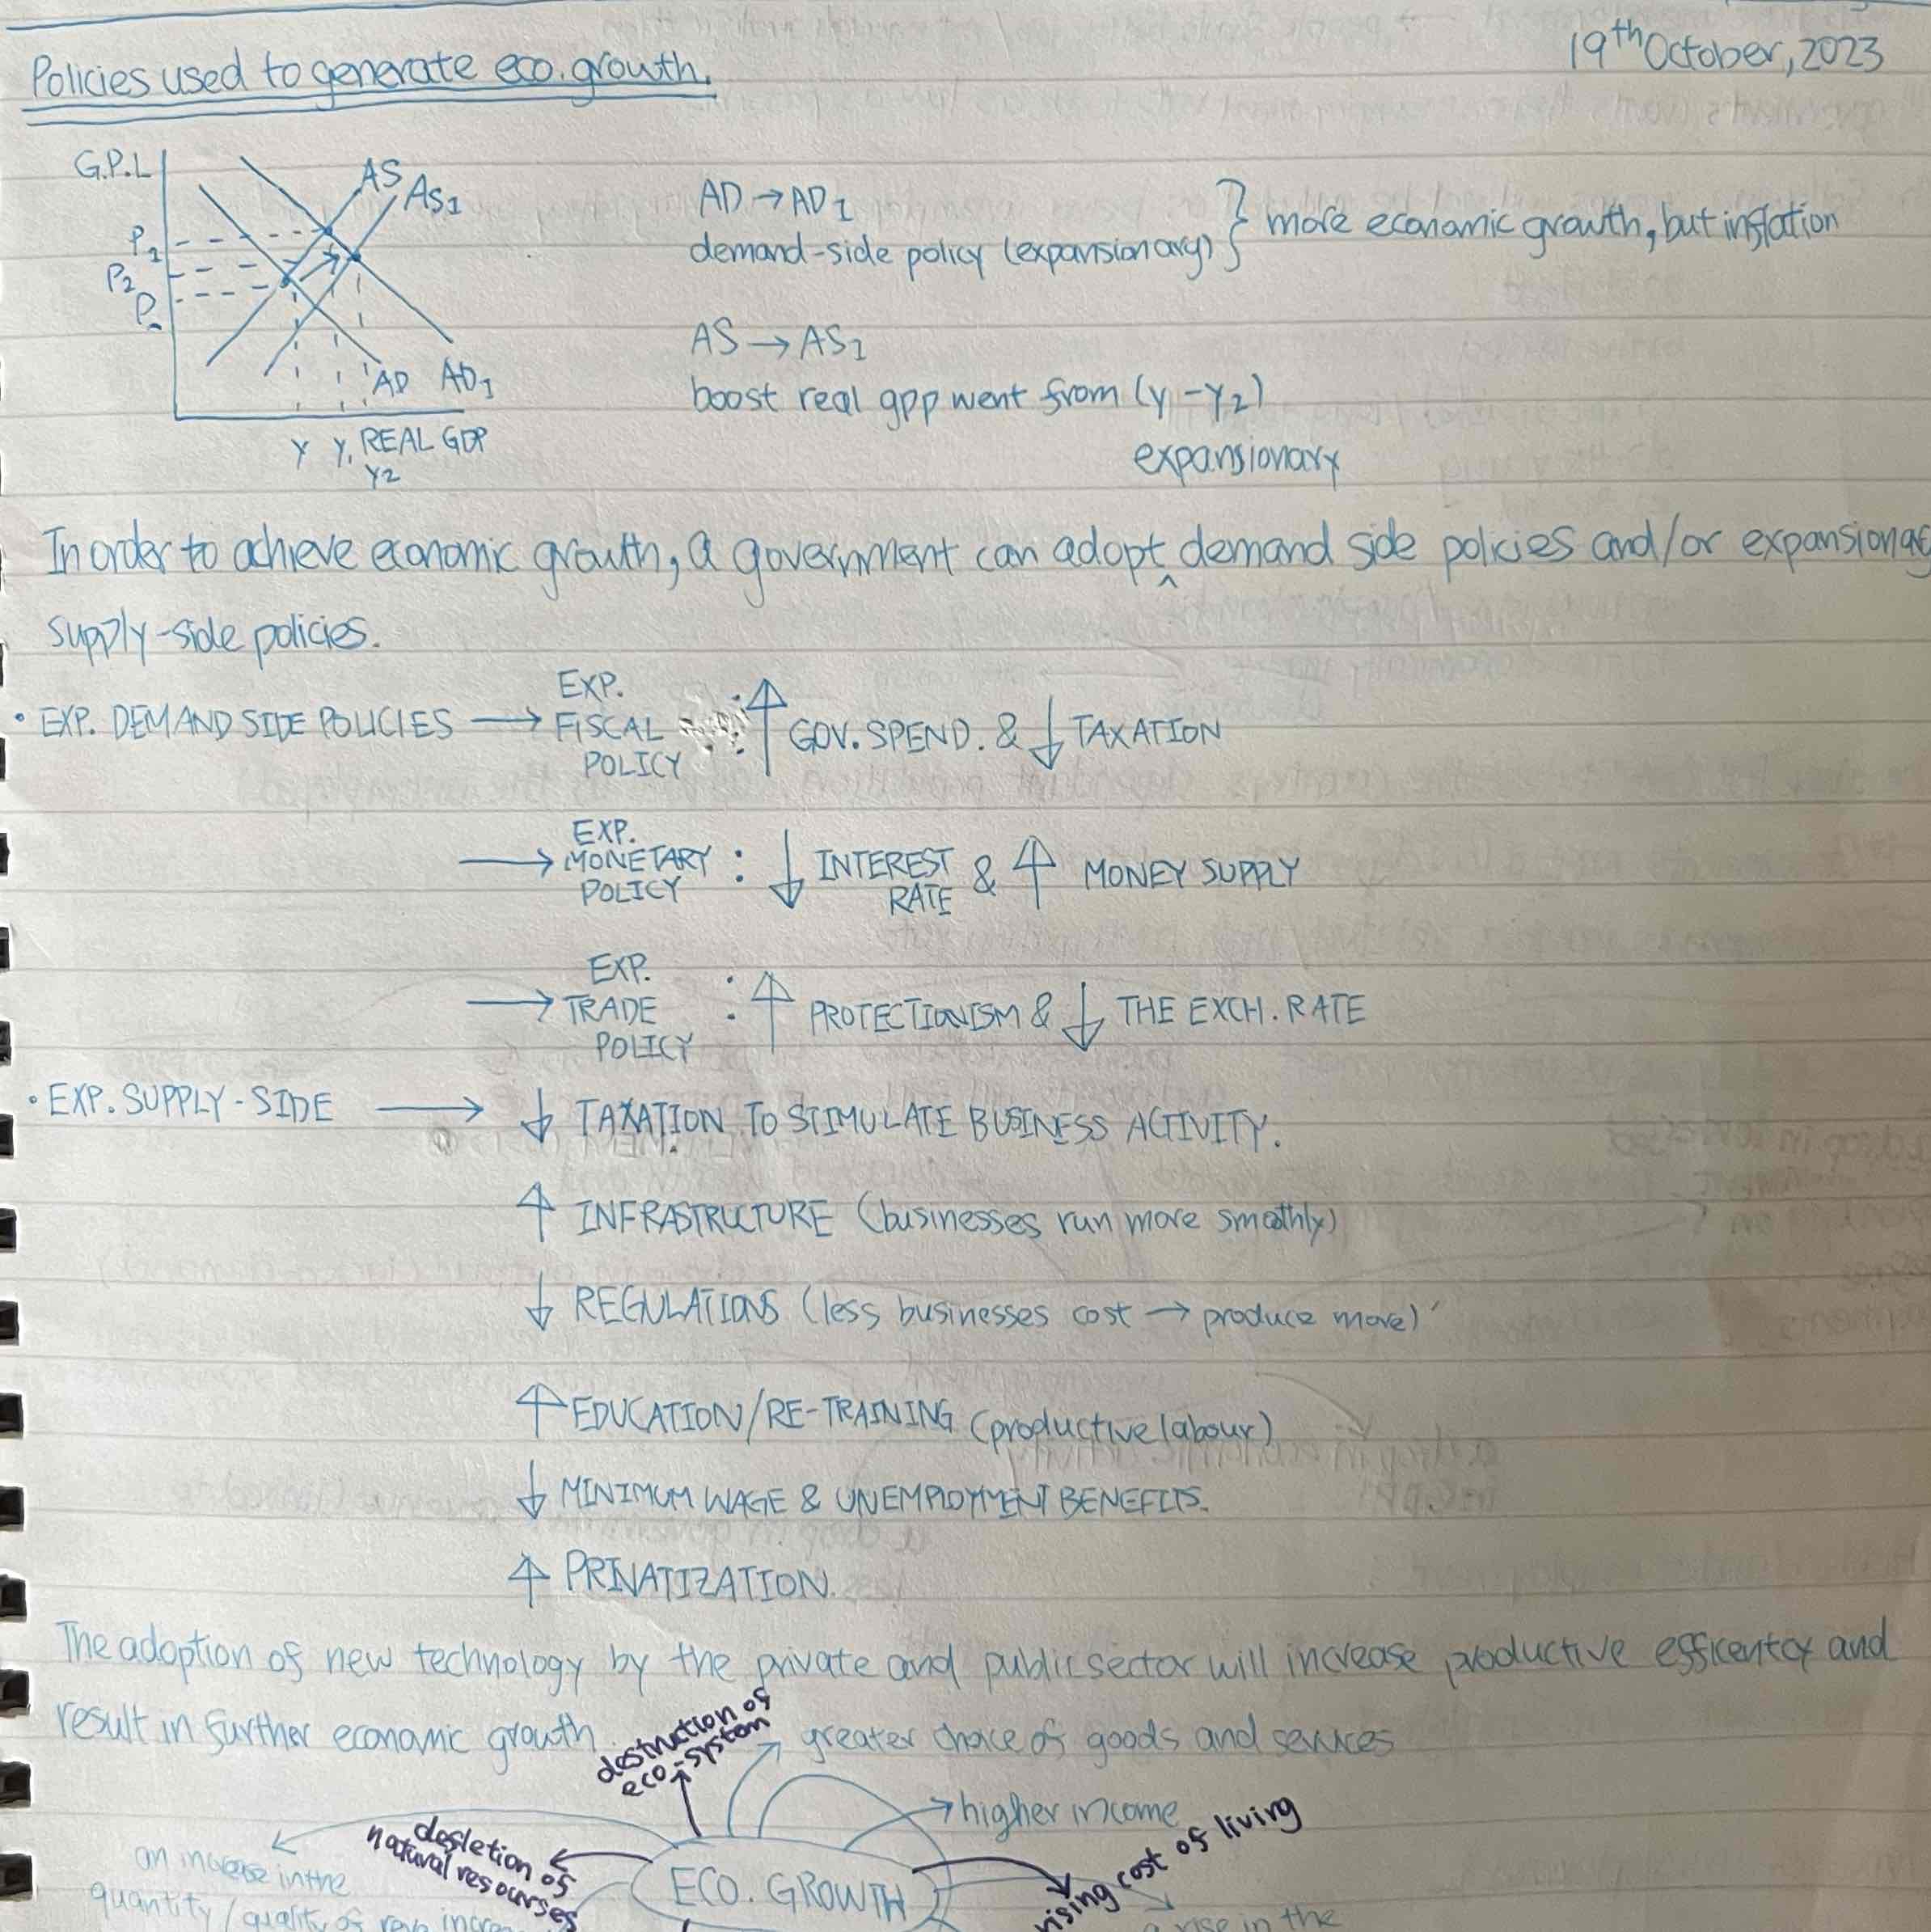 19th October, 2023
Policies used to generate eco. growth.
G.P.L
AS
AS1
P1
P2
P
AD AD1
Y Y1 REAL GDP
Y2
AD → AD1
demand-side policy (expansionary) } more economic growth, but inflation
AS → AS1
boost real gpp went from (y - y2)
expansionary
In order to achieve economic growth, a government can adopt ^ demand side policies and/or expansionary
supply-side policies.
• EXP. DEMAND SIDE POLICIES → EXP. FISCAL POLICY : ↑ GOV. SPEND. & ↓ TAXATION
→ EXP. MONETARY POLICY : ↓ INTEREST RATE & ↑ MONEY SUPPLY
→ EXP. TRADE POLICY : ↑ PROTECTIONISM & ↓ THE EXCH. RATE
• EXP. SUPPLY-SIDE → ↓ TAXATION TO STIMULATE BUSINESS ACTIVITY.
↑ INFRASTRUCTURE (businesses run more smoothly)
↓ REGULATIONS (less businesses cost → produce more)
↑ EDUCATION/RE-TRAINING (productive labour)
↓ MINIMUM WAGE & UNEMPLOYMENT BENEFITS.
↑ PRIVATIZATION.
The adoption of new technology by the private and public sector will increase productive efficentcy and
result in further economic growth.
destruction of
eco-system
greater choice of goods and services
higher income
rising cost of living
depletion of
natural resourses
an increase in the
quantity / quality of
ECO. GROWTH
a rise in the